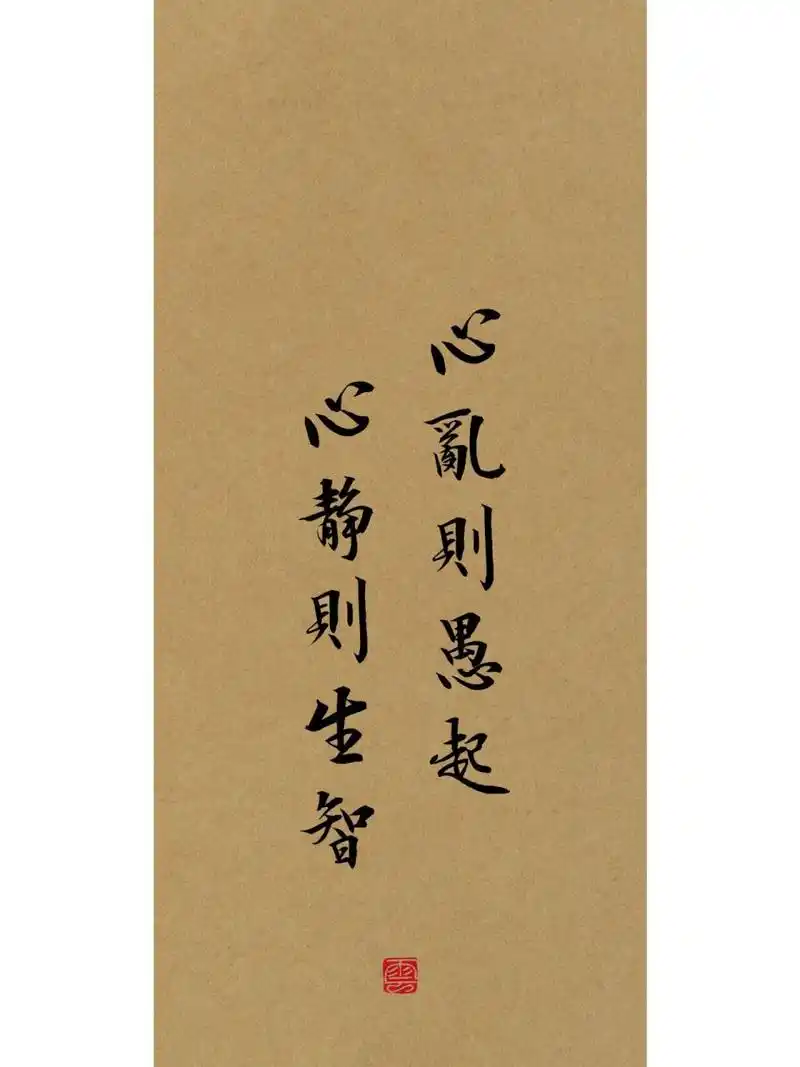 心亂則愚起
心静則生智
雲